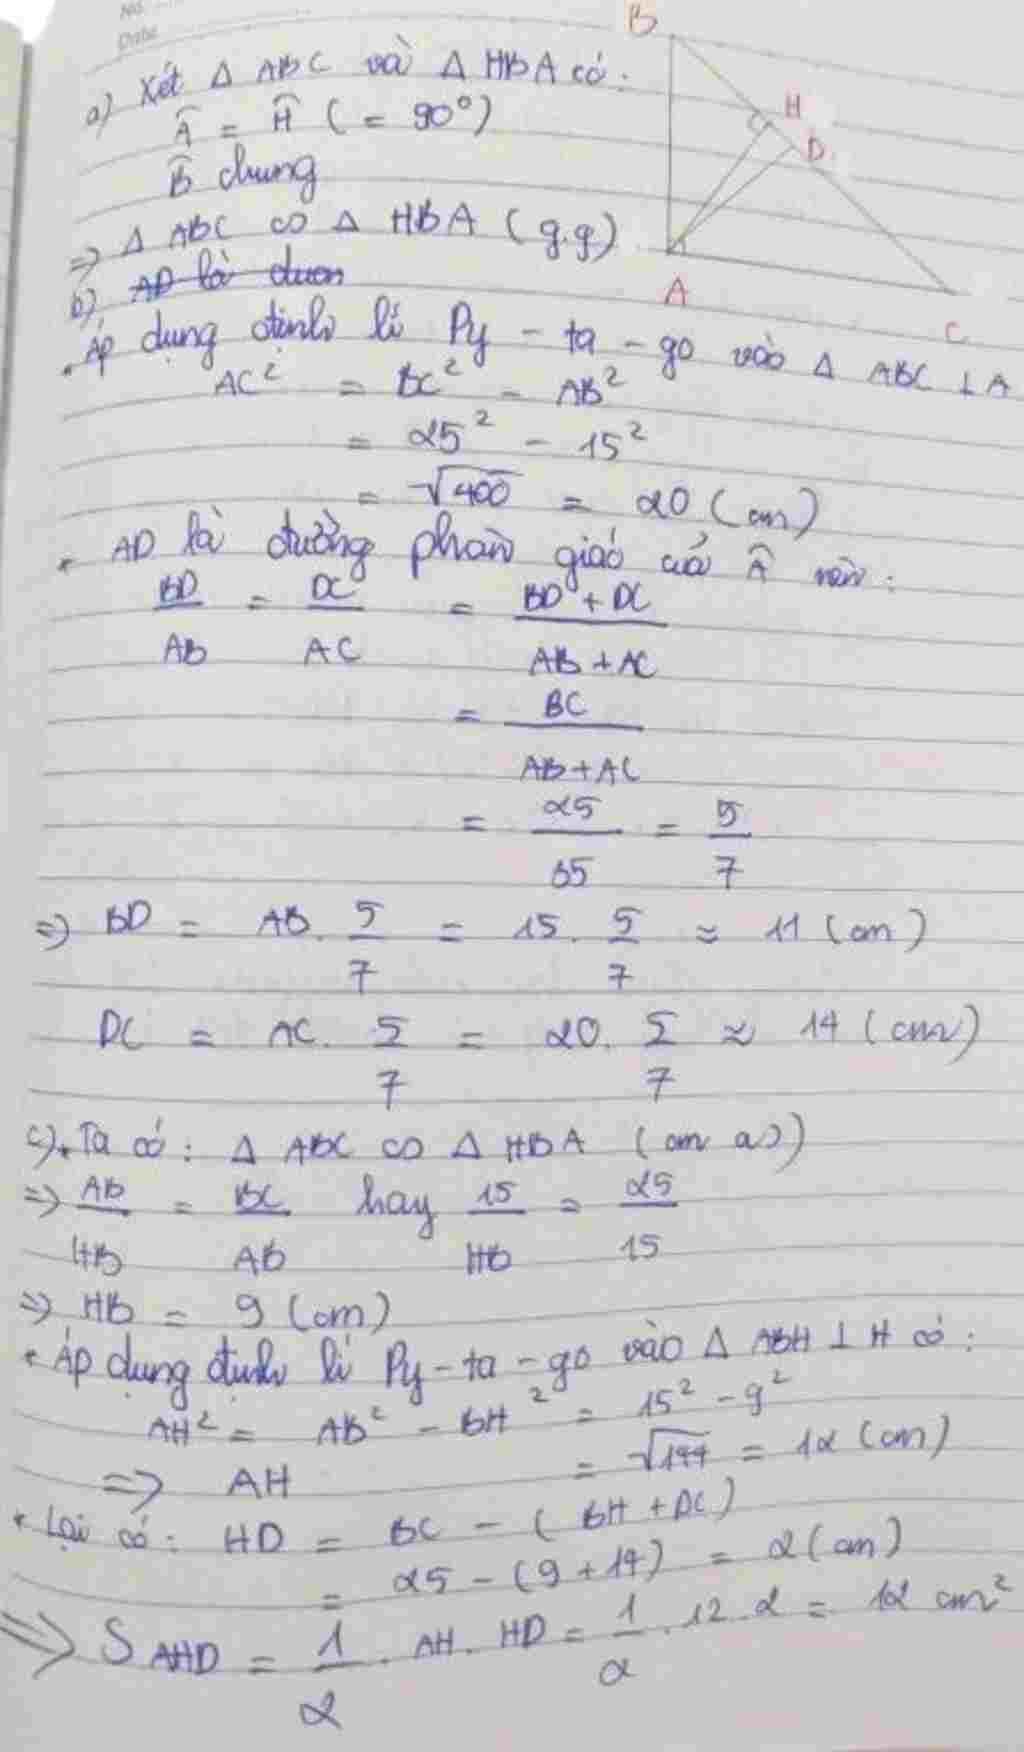 No.
Date
B
H
D
A
C
a) Xét Δ ABC và Δ HBA có:
Â = Ĥ ( = 90°)
B̂ chung
=> Δ ABC ∽ Δ HBA (g.g)
b) AD là đươn
• Áp dụng định lí Py - ta - go vào Δ ABC ⊥ A
AC² = BC² - AB²
= 25² - 15²
= √400 = 20 (cm)
• AD là đường phân giác của Â nên:
BD/AB = DC/AC = BD + DC/AB + AC
= BC/AB + AC
= 25/35 = 5/7
=> BD = AB. 5/7 = 15. 5/7 ≈ 11 (cm)
DC = AC. 5/7 = 20. 5/7 ≈ 14 (cm)
c). Ta có: Δ ABC ∽ Δ HBA (cm a))
=> AB/HB = BC/AB hay 15/HB = 25/15
=> HB = 9 (cm)
• Áp dụng định lí Py - ta - go vào Δ ABH ⊥ H có:
AH² = AB² - BH² = 15² - 9²
=> AH = √144 = 12 (cm)
• Lại có: HD = BC - ( BH + DC)
= 25 - (9 + 14) = 2 (cm)
=> S AHD = 1/2 . AH. HD = 1/2 . 12. 2 = 12 cm²